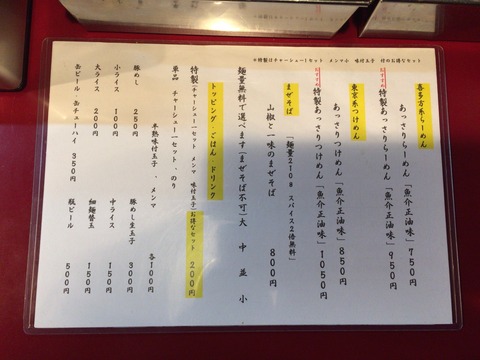 ※特製はチャーシュー1セット メンマ小 味付玉子 付のお得なセット
喜多方系らーめん
あっさりらーめん「魚介正油味」750円
おすすめ
特製あっさりらーめん「魚介正油味」950円
東京系つけめん
あっさりつけめん「魚介正油味」850円
おすすめ
特製あっさりつけめん「魚介正油味」1050円
まぜそば
「麺量210g スパイス2倍無料」
山椒と一味のまぜそば 800円
麺量無料で選べます(まぜそば不可)大 中 並 小
トッピング・ごはん・ドリンク
特製(チャーシュー1セット メンマ 味付玉子)お得なセット 200円
単品 チャーシュー1セット、のり
半熟味付玉子 メンマ 各100円
豚めし 250円 豚めし生玉子 300円
小ライス 100円 中ライス 150円
大ライス 200円 細麺替玉 150円
缶ビール・缶チューハイ 350円 瓶ビール 500円